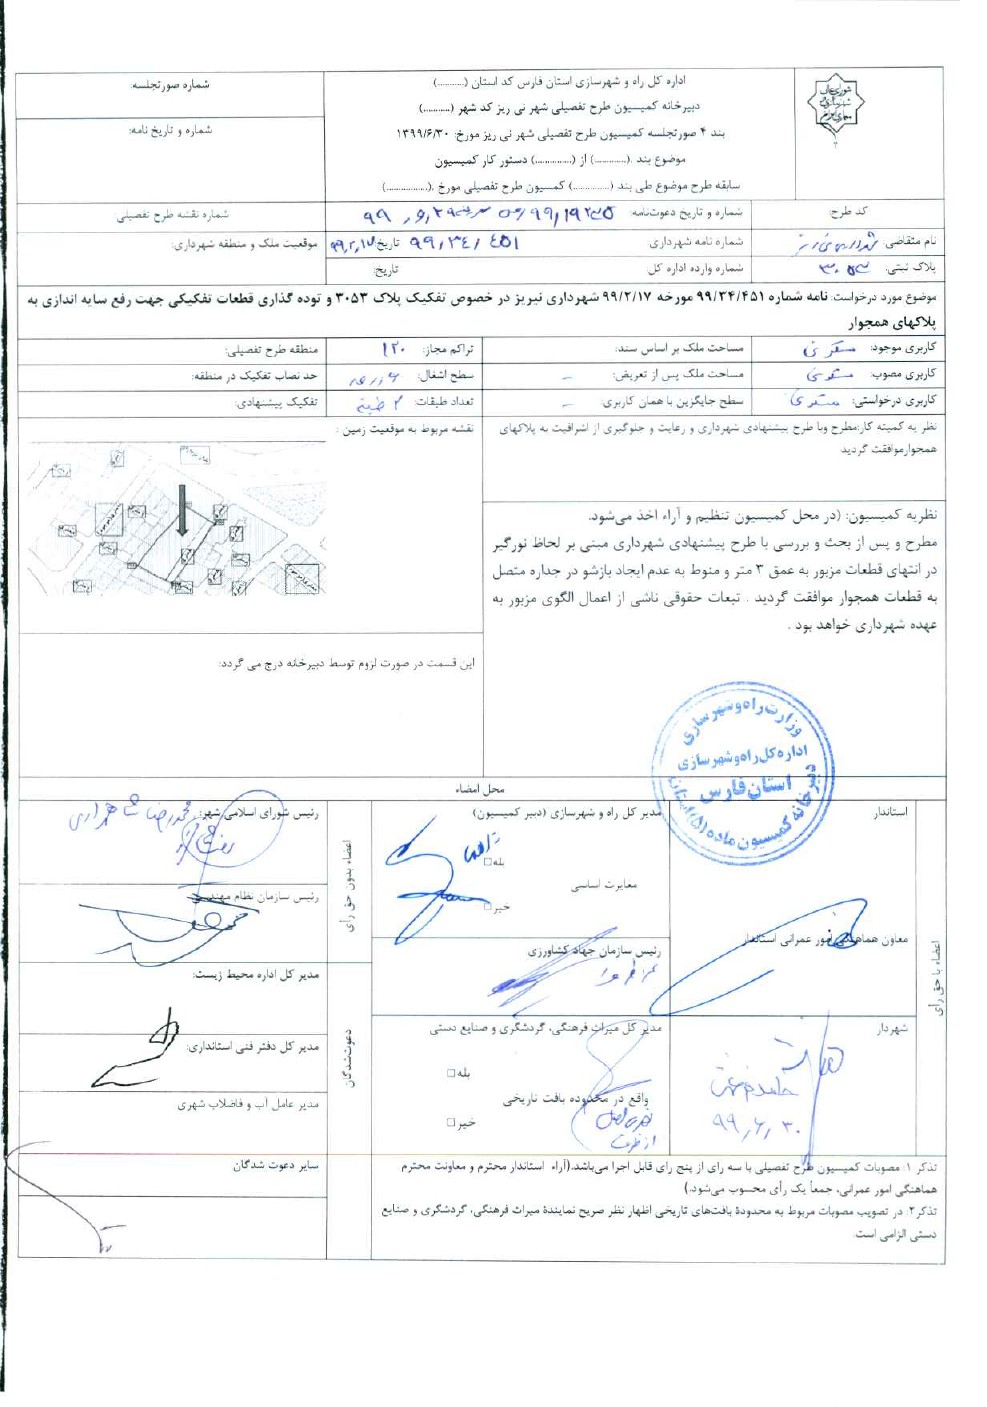 اداره کل راه و شهرسازی استان فارس کد استان (..........)
دبیرخانه کمیسیون طرح تفصیلی شهر نی ریز کد شهر (..........)
بند ۴ صورتجلسه کمیسیون طرح تفصیلی شهر نی ریز مورخ: ۱۳۹۹/۶/۳۰
موضوع بند .(..........) از (.............) دستور کار کمیسیون
سابقه طرح موضوع طی بند (.............) کمسیون طرح تفصیلی مورخ .(...............)
شماره صورتجلسه:
شماره و تاریخ نامه:
کد طرح:
شماره و تاریخ دعوت‌نامه:
شماره نقشه طرح تفصیلی
نام متقاضی:
شماره نامه شهرداری ۹۹/۳۴/۴۵۱ تاریخ: ۹۹/۲/۱۷
موقعیت ملک و منطقه شهرداری:
پلاک ثبتی: ۳۰۵۳
شماره وارده اداره کل
تاریخ:
موضوع مورد درخواست: نامه شماره ۹۹/۳۴/۴۵۱ مورخه ۹۹/۲/۱۷ شهرداری نیریز در خصوص تفکیک پلاک ۳۰۵۳ و توده گذاری قطعات تفکیکی جهت رفع سایه اندازی به
پلاکهای همجوار
کاربری موجود: مسکونی
مساحت ملک بر اساس سند:
تراکم مجاز: ۱۲۰
منطقه طرح تفصیلی:
کاربری مصوب: مسکونی
مساحت ملک پس از تعریض: –
سطح اشغال: ۶۰ درصد
حد نصاب تفکیک در منطقه:
کاربری درخواستی: مسکونی
سطح جایگزین با همان کاربری: –
تعداد طبقات: ۲ طبقه
تفکیک پیشنهادی:
نظر یه کمیته کار:مطرح وبا طرح پیشنهادی شهرداری و رعایت و جلوگیری از اشرافیت به پلاکهای
همجوارموافقت گردید
نقشه مربوط به موقعیت زمین :
نظریه کمیسیون: (در محل کمیسیون تنظیم و آراء اخذ می‌شود.
مطرح و پس از بحث و بررسی با طرح پیشنهادی شهرداری مبنی بر لحاظ نورگیر
در انتهای قطعات مزبور به عمق ۳ متر و منوط به عدم ایجاد بازشو در جداره متصل
به قطعات همجوار موافقت گردید . تبعات حقوقی ناشی از اعمال الگوی مزبور به
عهده شهرداری خواهد بود .
این قسمت در صورت لزوم توسط دبیرخانه درج می گردد:
وزارت راه و شهرسازی
اداره کل راه و شهرسازی
استان فارس
دبیرخانه کمیسیون ماده (۵) استان
محل امضاء
استاندار
مدیر کل راه و شهرسازی (دبیر کمیسیون)
بله□
مغایرت اساسی
خیر□
اعضاء بدون حق رأی
رئیس شورای اسلامی شهر:
رئیس سازمان نظام مهندسی
معاون هماهنگی امور عمرانی استاندار
اعضاء با حق رأی
رئیس سازمان جهاد کشاورزی
مدیر کل اداره محیط زیست:
شهردار
۹۹/۶/۳۰
مدیر کل میراث فرهنگی، گردشگری و صنایع دستی
بله□
واقع در محدوده بافت تاریخی
خیر□
دعوت‌شدگان
مدیر کل دفتر فنی استانداری:
مدیر عامل آب و فاضلاب شهری
سایر دعوت شدگان
تذکر ۱: مصوبات کمیسیون طرح تفصیلی با سه رای از پنج رای قابل اجرا می‌باشد.(آراء استاندار محترم و معاونت محترم
هماهنگی امور عمرانی، جمعاً یک رأی محسوب می‌شود.)
تذکر۲: در تصویب مصوبات مربوط به محدودهٔ بافت‌های تاریخی اظهار نظر صریح نمایندهٔ میراث فرهنگی، گردشگری و صنایع
دستی الزامی است.